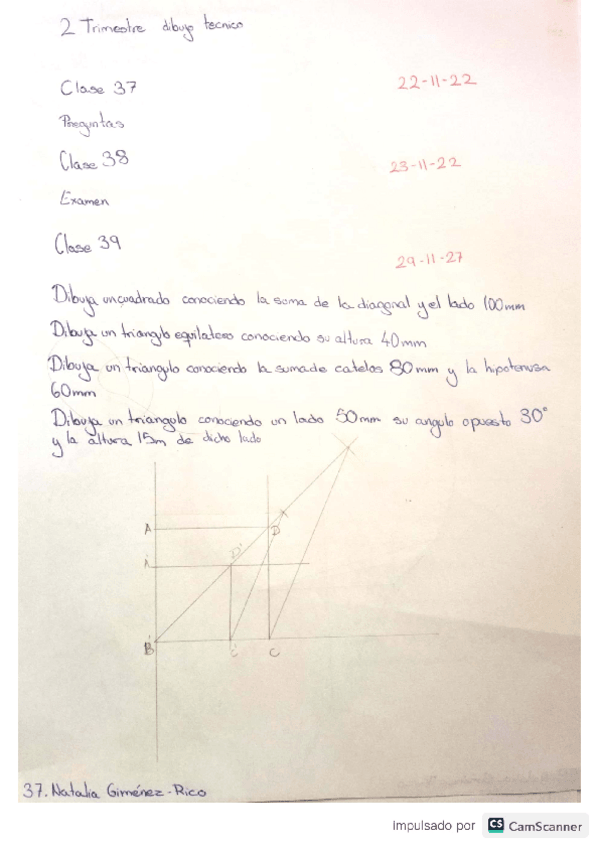 2 Trimestre dibujo tecnico
Clase 37
22-11-22
Preguntas
Clase 38
23-11-22
Examen
Clase 39
29-11-27
Dibuja un cuadrado conociendo la suma de la diagonal y el lado 100mm
Dibuja un triangulo equilatero conociendo su altura 40mm
Dibuja un triangulo conociendo la suma de catetos 80mm y la hipotenusa
60mm
Dibuja un triangulo conociendo un lado 50mm su angulo opuesto 30°
y la altura 15m de dicho lado
A
D
A'
D'
B
C'
C
37. Natalia Giménez-Rico
Impulsado por CS CamScanner